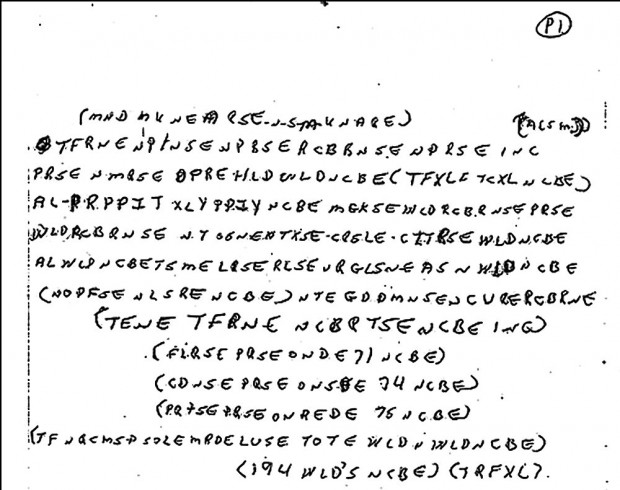 P1
(MND MKNEARSE-N-S-M-KNARE) (ACSM.)
TFRNENPINSENPBSERCBBNSENPRSEINC
PRSENMRSEOPREHLDWLDNCBE(TFXLFTCXLNCBE)
AL-PRPPIT XLYPPIYNCBE MGKSEWLDRCBRNSEPRSE
WLDRCBRNSE NTOSNENTXSE-CRSLE-CITRSEWLDNCBE
ALWLDNCBETSMELRSERLSEURGLSNEASNWLDNCBE
(NOPFSENLSRENCBE)NTEGDDMNSENCURERCBRNE
(TENE TFRNE NCBRTSENCBEING)
(FLRSE PRSE ONDE 71 NCBE)
(CDNSE PRSE ONSDE 74 NCBE)
(PRTSE PRSE ONREDE 75 NCBE)
(TFNQCMSPSOLEMRDELUSE TOTE WLDN WLDNCBE)
(194 WLD'S NCBE) (TRFXL)